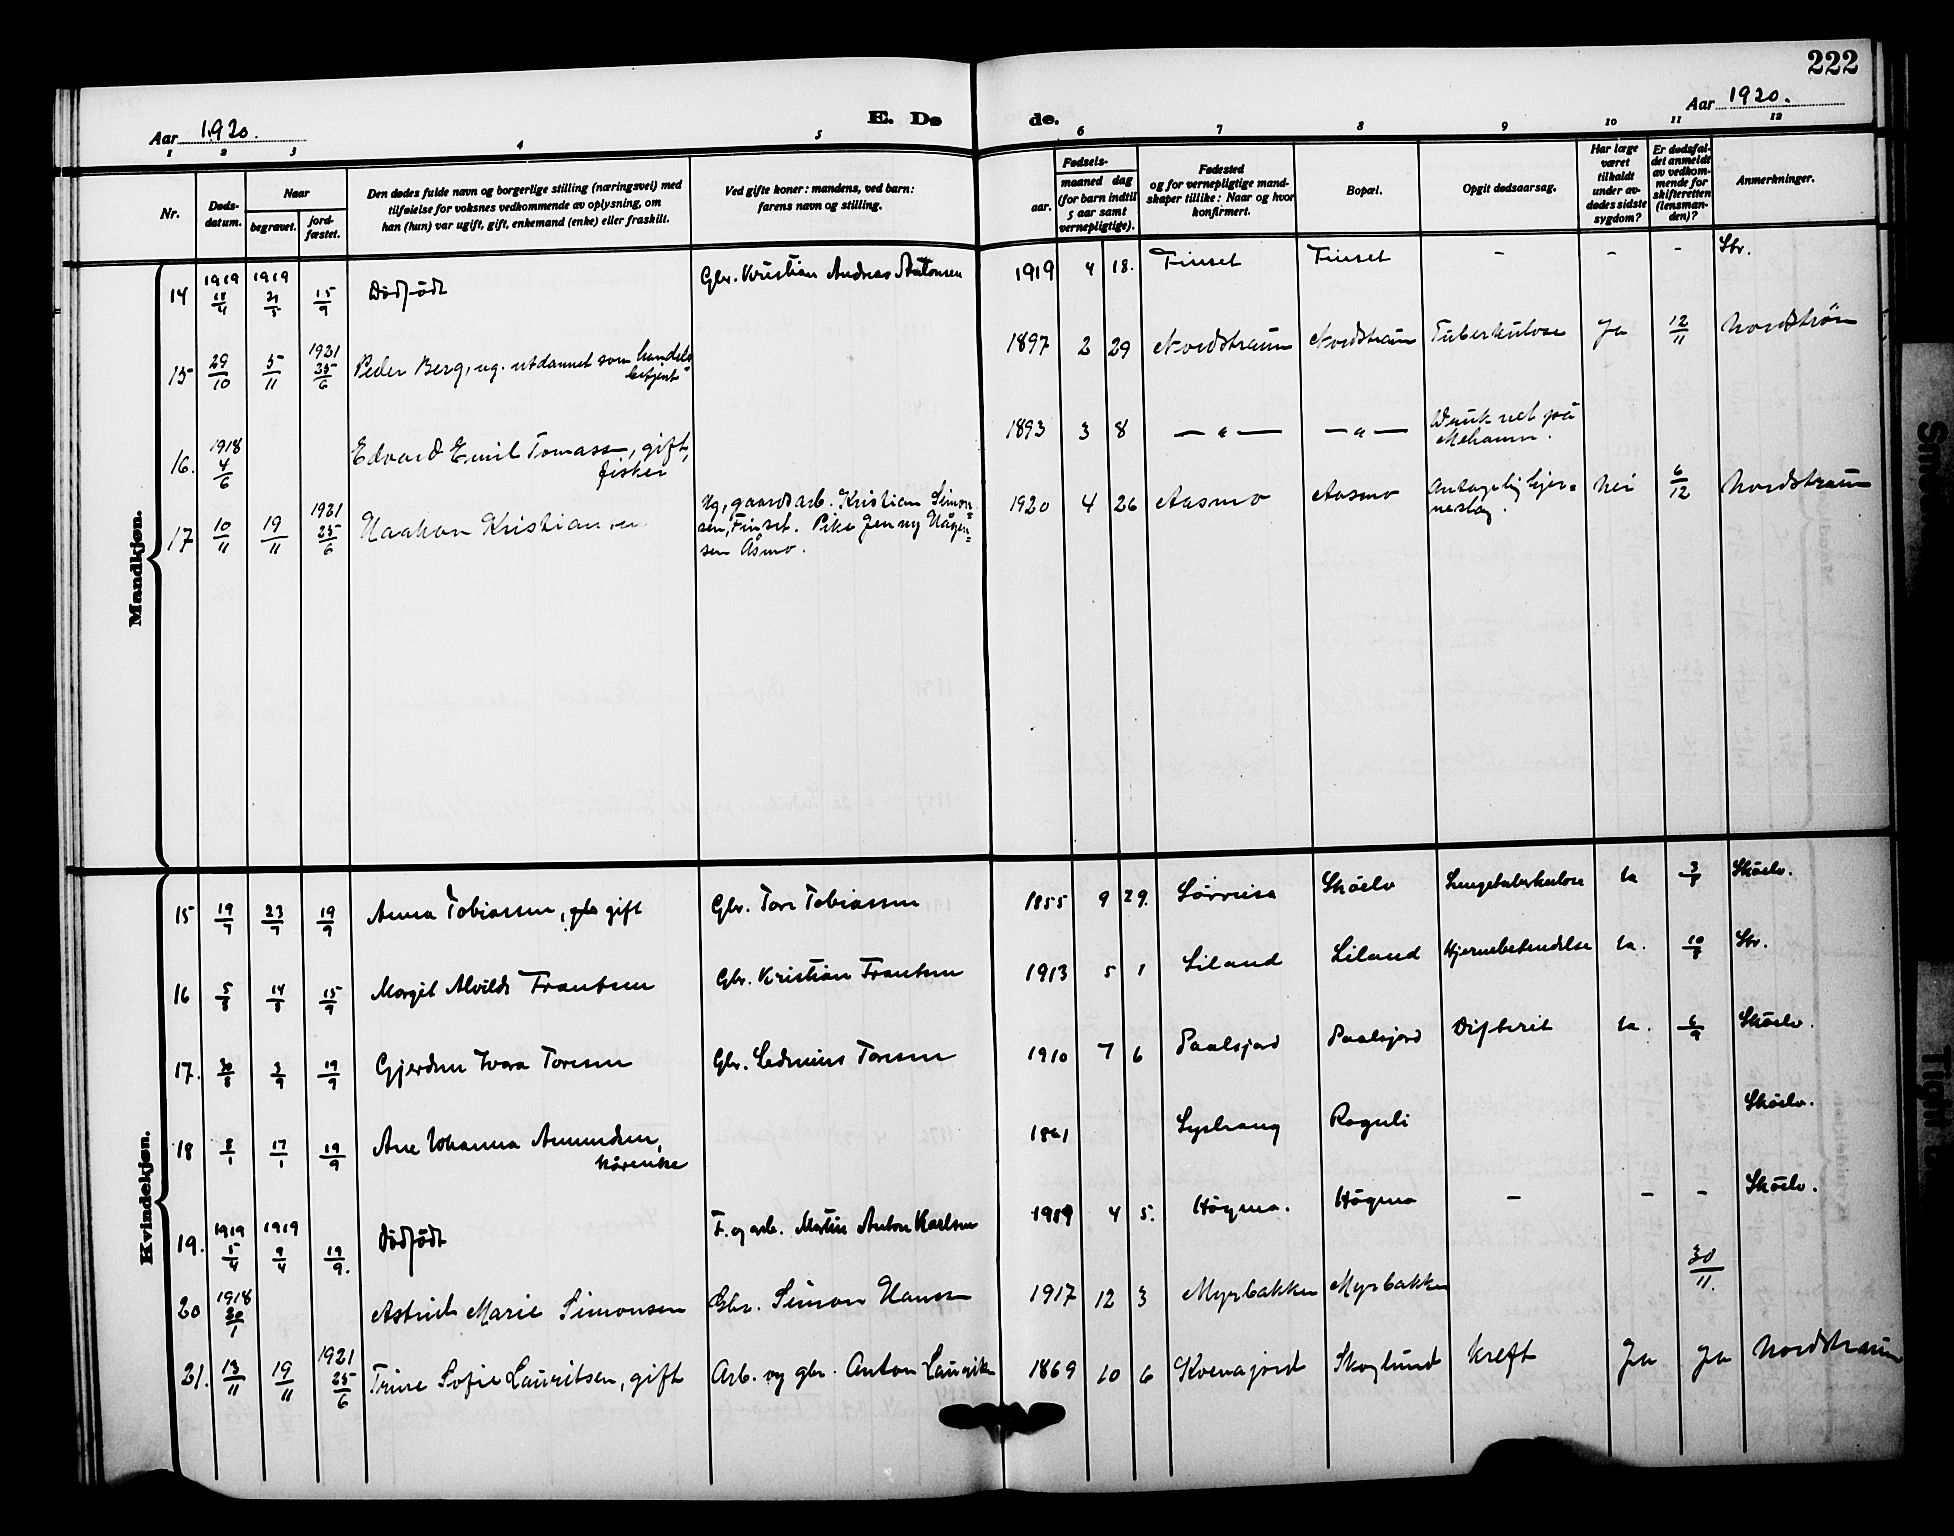 222
Aar 1920.
E. Dø
de.
Aar 1920.
1 2 3 4 5 6 7 8 9 10 11 12
Nr.
Døds-
datum.
Naar
begravet.
jord-
fæstet.
Den dødes fulde navn og borgerlige stilling (næringsvei) med
tilføielse for voksnes vedkommende av oplysning, om
han (hun) var ugift, gift, enkemand (enke) eller fraskilt.
Ved gifte koner: mandens, ved barn:
farens navn og stilling.
Fødsels-
aar.
maaned dag
(for barn indtil
5 aar samt
vernepligtige).
Fødested
og for vernepligtige mand-
skaper tillike: Naar og hvor
konfirmert.
Bopæl.
Opgit dødsaarsag.
Har læge
været
tilkaldt
under av-
dødes sidste
sygdom?
Er dødsfal-
det anmeldt
av vedkom-
mende for
skifteretten
(lensman-
den)?
Anmerkninger.
Mandkjøn.
14 1919 18/4 1919 21/5 15/9 Dødfødt Gbr. Kristian Andreas Antonsen 1919 4 18. Finset Finset - - - Str.
15 29/10 5/11 1921 25/6 Peder Berg, ug. utdannet som handels-
betjent 1897 2 29 Nordstraum Nordstraum Tuberkulose Ja 12/11 Nordstrøm
16. 1918 4/6 Edvard Emil Tomassen, gift,
fisker 1893 3 8 — „ — — „ — på
Mehamn.
17 10/11 19/11 1921 25/6 Haakon Kristiansen Ug, gaardsarb. Kristian Simon-
sen, Finset. Pike Jenny Hågen-
sen Åsmo. 1920 4 26 Aasmo Aasmo Antagelig hjer-
neslag. Nei 6/12 Nordstraum
Kvindekjøn.
15 19/7 23/7 19/9 Anna Tobiassen, gift Gbr. Tore Tobiassen 1855 9 29. Sørreisa Skøelv Lungetuberkulose Ja 3/8 Skøelv.
16 5/8 14/8 15/9 Margit Alvilde Frantsen Gbr. Kristian Frantsen 1913 5 1 Liland Liland Hjernebetendelse Ja. 10/8 Str.
17. 30/8 3/9 19/9 Gjerdine Ivara Toresen Gbr. Ledinius Toresen 1910 7 6 Paalsjord Paalsjord Difterit Ja. 6/9 Skøelv.
18 8/1 17/1 19/9 Ane Johanna Amundsen,
kårenke 1861 Lysbang Roguli Skøelv.
19. 1919 5/4 1919 9/4 19/9. Dødfødt F. og arb. Martin Anton Karlsen 1919 4 5. Høgmo. Høgmo - - - Skøelv.
20 1918 30/1 Astrid Marie Simonsen Gbr. Simon Hansen 1917 12 3 Myrbakken Myrbakken 30/11.
21. 13/11 19/11 1921 25/6 Trine Sofie Lauritsen, gift Arb. og gbr. Anton Lauritsen 1869 10 6 Kvenajord Skoglund Kreft Ja Ja Nordstraum